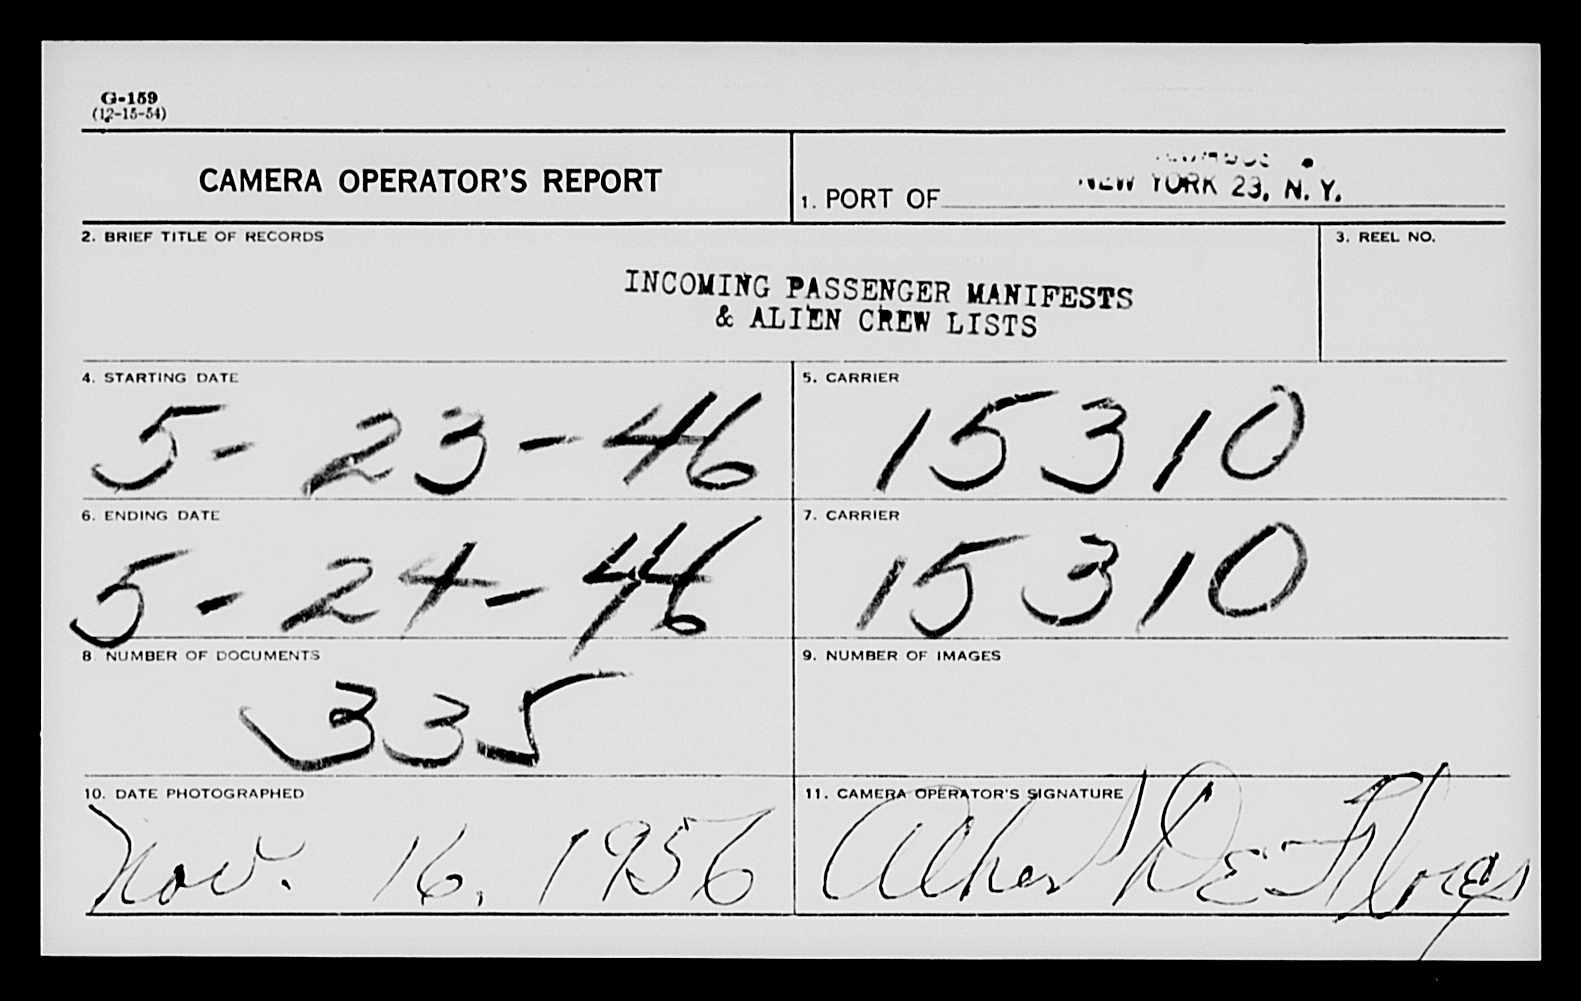 G-159
(12-15-54)
CAMERA OPERATOR'S REPORT
1. PORT OF NEW YORK 23, N. Y.
2. BRIEF TITLE OF RECORDS
3. REEL NO.
INCOMING PASSENGER MANIFESTS
& ALIEN CREW LISTS
4. STARTING DATE
5-23-46
5. CARRIER
15310
6. ENDING DATE
5-24-46
7. CARRIER
15310
8. NUMBER OF DOCUMENTS
335
9. NUMBER OF IMAGES
10. DATE PHOTOGRAPHED
Nov. 16, 1956
11. CAMERA OPERATOR'S SIGNATURE
Albert